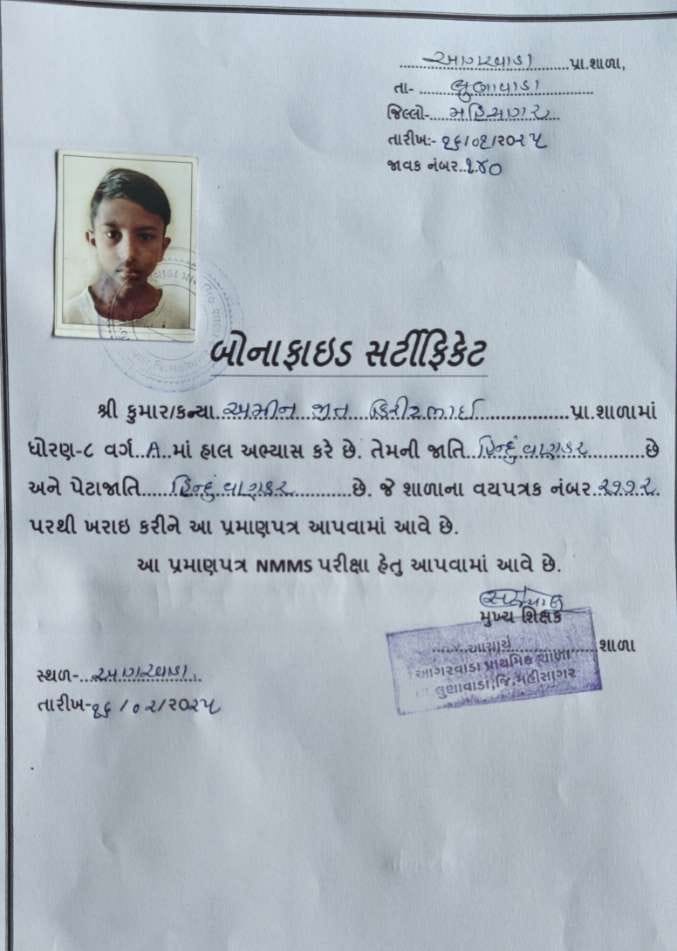 આગરવાડા પ્રા.શાળા,
તા- લુણાવાડા
જિલ્લો- મહિસાગર
તારીખ:- ૧૬/૦૨/૨૦૨૫
જાવક નંબર..૧૪૦
બોનાફાઇડ સર્ટીફિકેટ
શ્રી કુમાર/કન્યા..અમીન જીત કિરીટભાઈ પ્રા.શાળામાં
ધોરણ-૮ વર્ગ..A..માં હાલ અભ્યાસ કરે છે. તેમની જાતિ..હિન્દું વાણકર છે
અને પેટાજાતિ.....હિન્દું વાણકર છે. જે શાળાના વયપત્રક નંબર..૨૧૧૨.
પરથી ખરાઇ કરીને આ પ્રમાણપત્ર આપવામાં આવે છે.
આ પ્રમાણપત્ર NMMS પરીક્ષા હેતુ આપવામાં આવે છે.
મુખ્ય શિક્ષક
આચાર્ય શાળા
આગરવાડા પ્રાથમિક શાળા
લુણાવાડા,જિ.મહીસાગર
સ્થળ-..આગરવાડા
તારીખ-૧૬/૦૨/૨૦૨૫